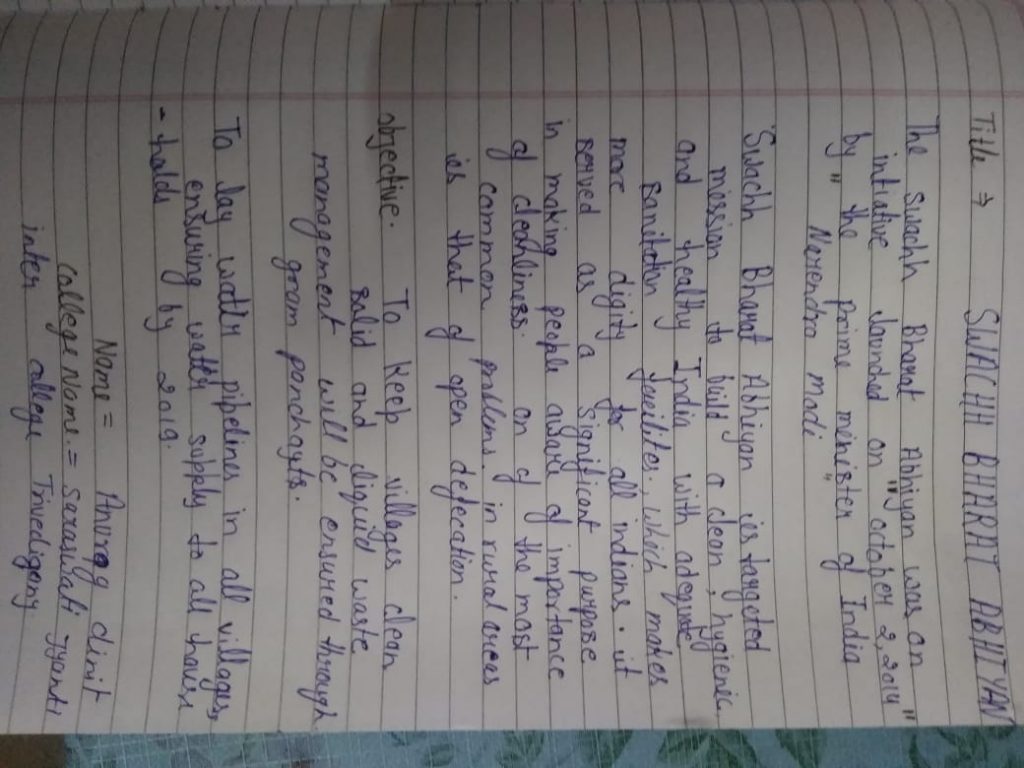 Title ⇒ SWACHH BHARAT ABHIYAN
The Swachh Bharat Abhiyan was an "
initiative launded on "october 2,2014
by " the prime minister of India
Narendra modi "
Swachh Bharat Abhiyan is targeted
mission to build a clean, hygienic,
and healthy India with adequte
sanitation feeilites., which makes
more digity for all indians. it
served as a significant purpose
in making people aware of importance
of cleanliness. on of the most
of common problems. in rural areas
is that of open defecation.
objective. To keep villages clean
solid and liquid waste
management will be ensured through
gram panchayts.
To lay water pipelines in all villages,
ensuring water supply to all house
-holds by 2019.
Name = Anurag dixit
college Name. = saraswati gyanti
inter college